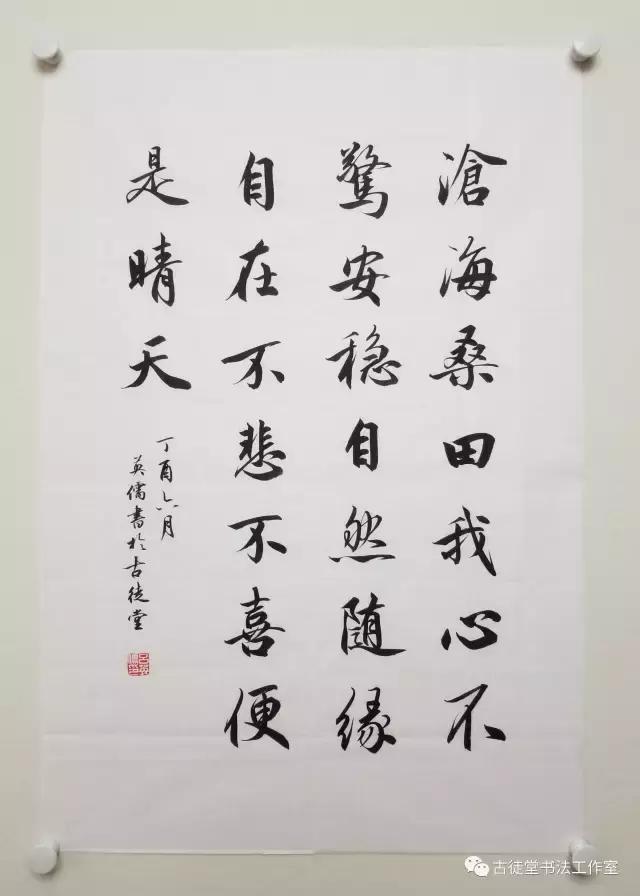 滄海桑田我心不
驚安穏自然随縁
自在不悲不喜便
是晴天
丁酉六月
英儒書於古徒堂
古徒堂书法工作室